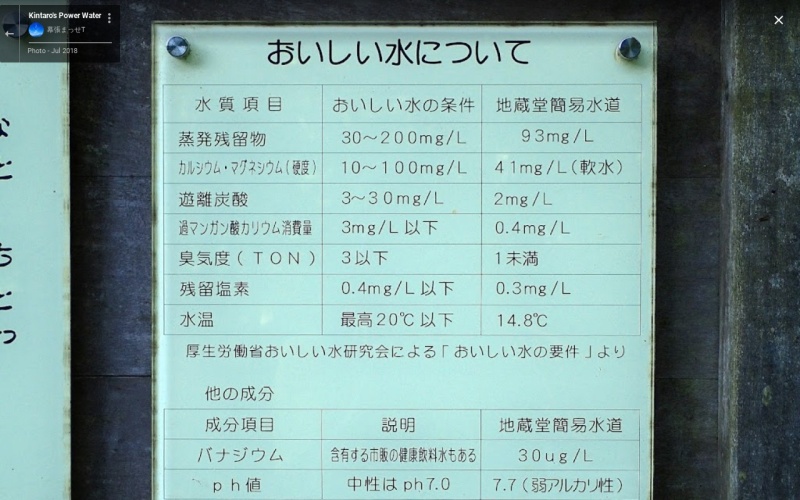 Kintaro's Power Water
幕張まっせT
Photo - Jul 2018
おいしい水について
水質項目 おいしい水の条件 地蔵堂簡易水道
蒸発残留物 30～200mg/L 93mg/L
カルシウム・マグネシウム(硬度) 10～100mg/L 41mg/L(軟水)
遊離炭酸 3～30mg/L 2mg/L
過マンガン酸カリウム消費量 3mg/L以下 0.4mg/L
臭気度(TON) 3以下 1未満
残留塩素 0.4mg/L以下 0.3mg/L
水温 最高20℃以下 14.8℃
厚生労働省おいしい水研究会による「おいしい水の要件」より
他の成分
成分項目 説明 地蔵堂簡易水道
バナジウム 含有する市販の健康飲料水もある 30ug/L
ph値 中性はph7.0 7.7(弱アルカリ性)